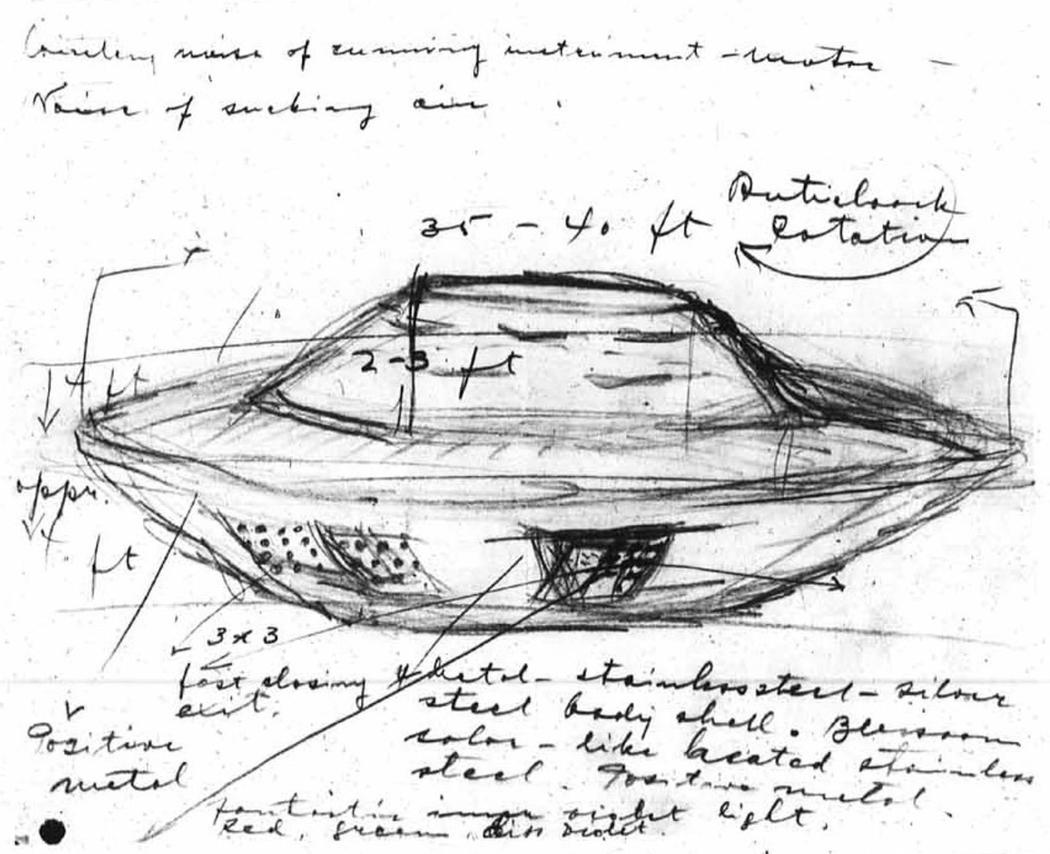 noise of running instrument - motor -
Noise of sucking air
Anticlock
Rotation
35 - 40 ft
2-3 ft
4 ft
appr.
4. ft
3 x 3
fast closing
exit.
Metal - stainless steel - silver
steel body shell.
color - like heated stainless
steel. Positive metal
Positive
metal
fantastic light.
Red, green,